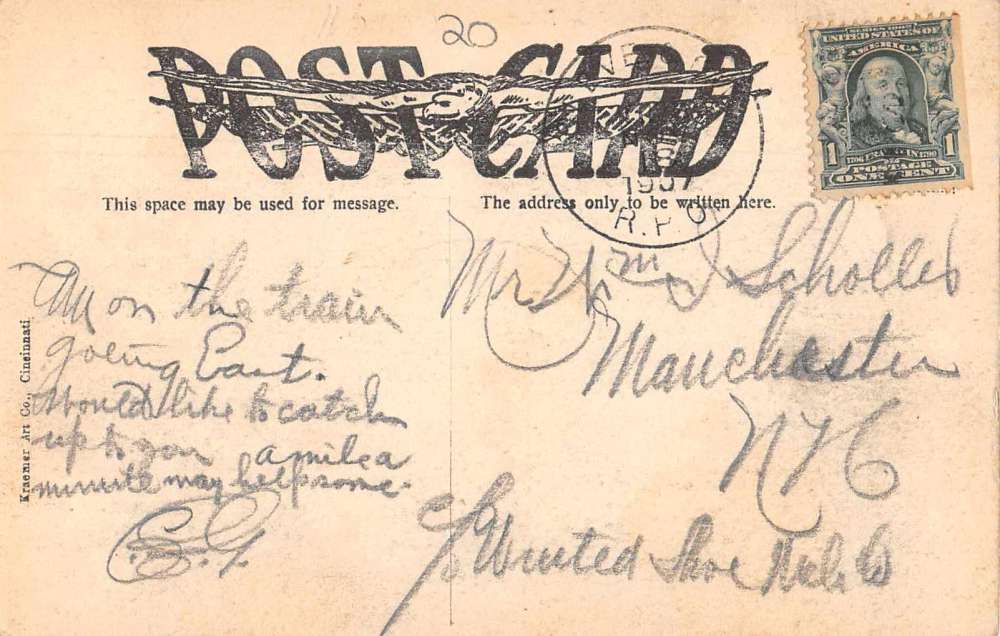 20
POST CARD
This space may be used for message.
The address only to be written here.
SERIES 1902
UNITED STATES OF
AMERICA
1 1
POSTAGE
ONE CENT
1907
R.P.O.
Am on the train
going East.
Would like to catch
up to you a mile a
minute may help some.
E.G.
Mr Wm J Scholles
Manchester
NYC
c/o United Shoe
Kraemer Art Co., Cincinnati